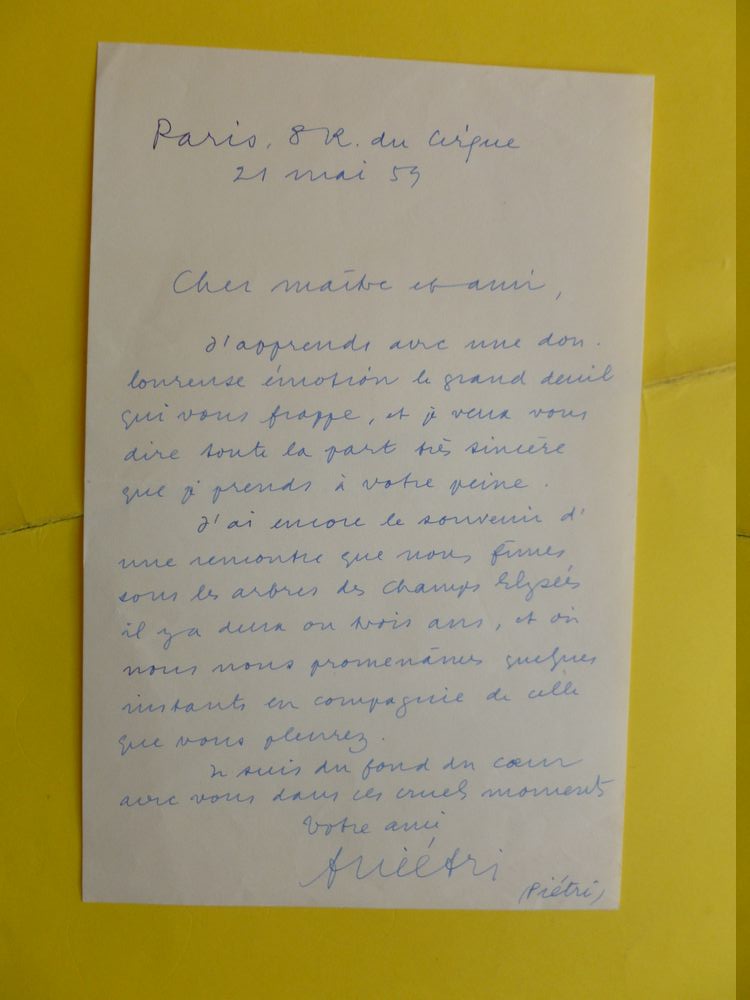 Paris, 8 R. du Cirque
21 mai 59
Cher maître et ami,
J'apprends avec une dou-
loureuse émotion le grand deuil
qui vous frappe, et je veux vous
dire toute la part très sincère
que je prends à votre peine.
J'ai encore le souvenir d'
une rencontre que nous fîmes
sous les arbres des Champs Elysées
il y a deux ou trois ans, et où
nous nous promenâmes quelques
instants en compagnie de celle
que vous pleurez.
Je suis du fond du cœur
avec vous dans ces cruels moments
Votre ami
Piétri
(Piétri)